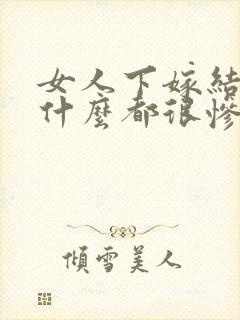 女人下嫁結
什麼都很慘
傾雪美人